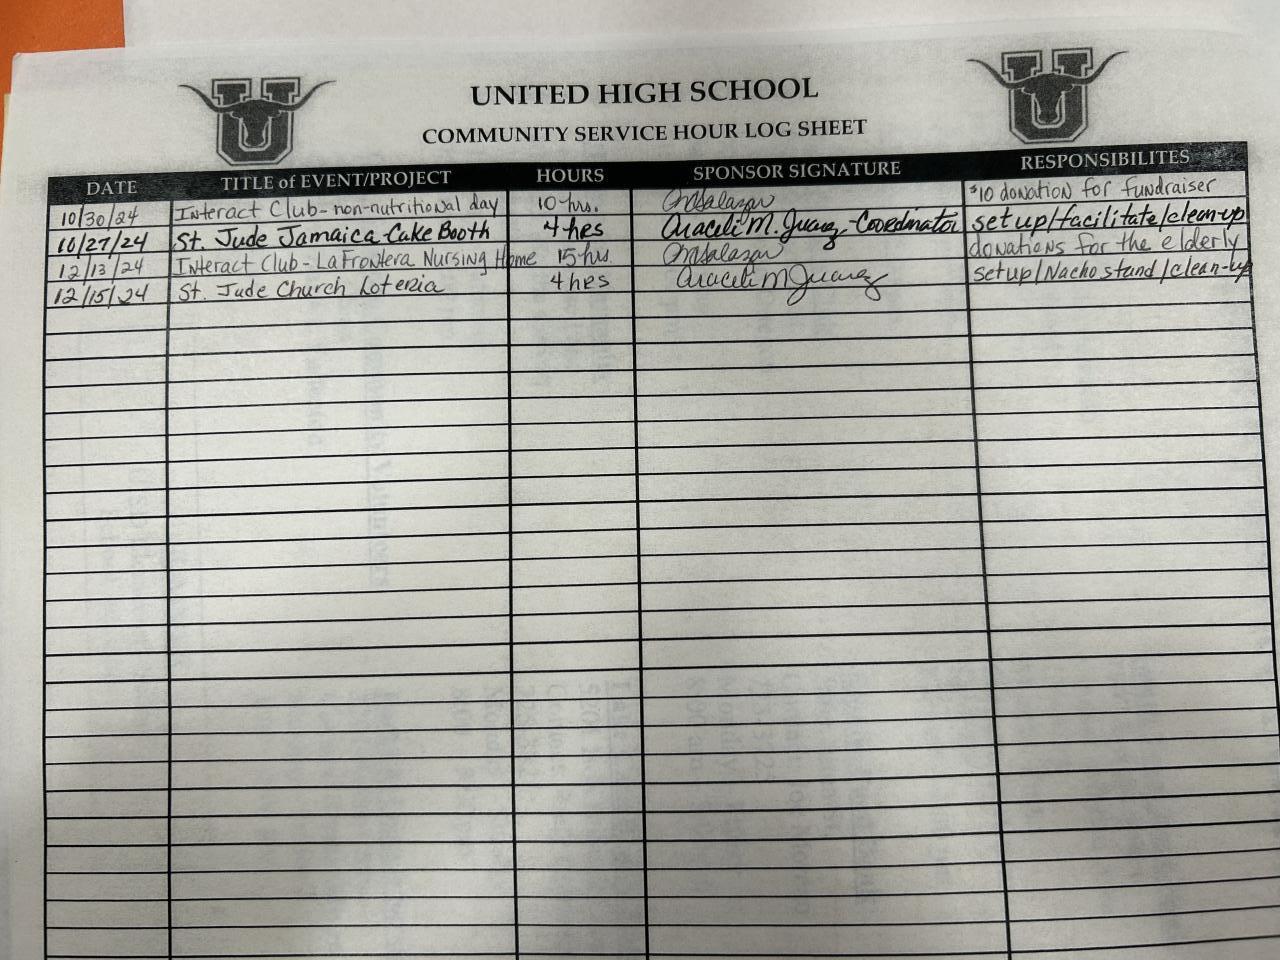 UNITED HIGH SCHOOL
COMMUNITY SERVICE HOUR LOG SHEET
DATE TITLE of EVENT/PROJECT HOURS SPONSOR SIGNATURE RESPONSIBILITES
10/30/24 Interact Club-non-nutritional day 10 hrs. $10 donation for fundraiser
10/27/24 St. Jude Jamaica-Cake Booth 4 hrs Araceli M. Juarez-Coordinator setup/facilitate/clean-up
12/13/24 Interact Club-La Frontera Nursing Home 15 hrs. donations for the elderly
12/15/24 St. Jude Church Loteria 4 hrs Araceli M Juarez setup/Nacho stand/clean-up